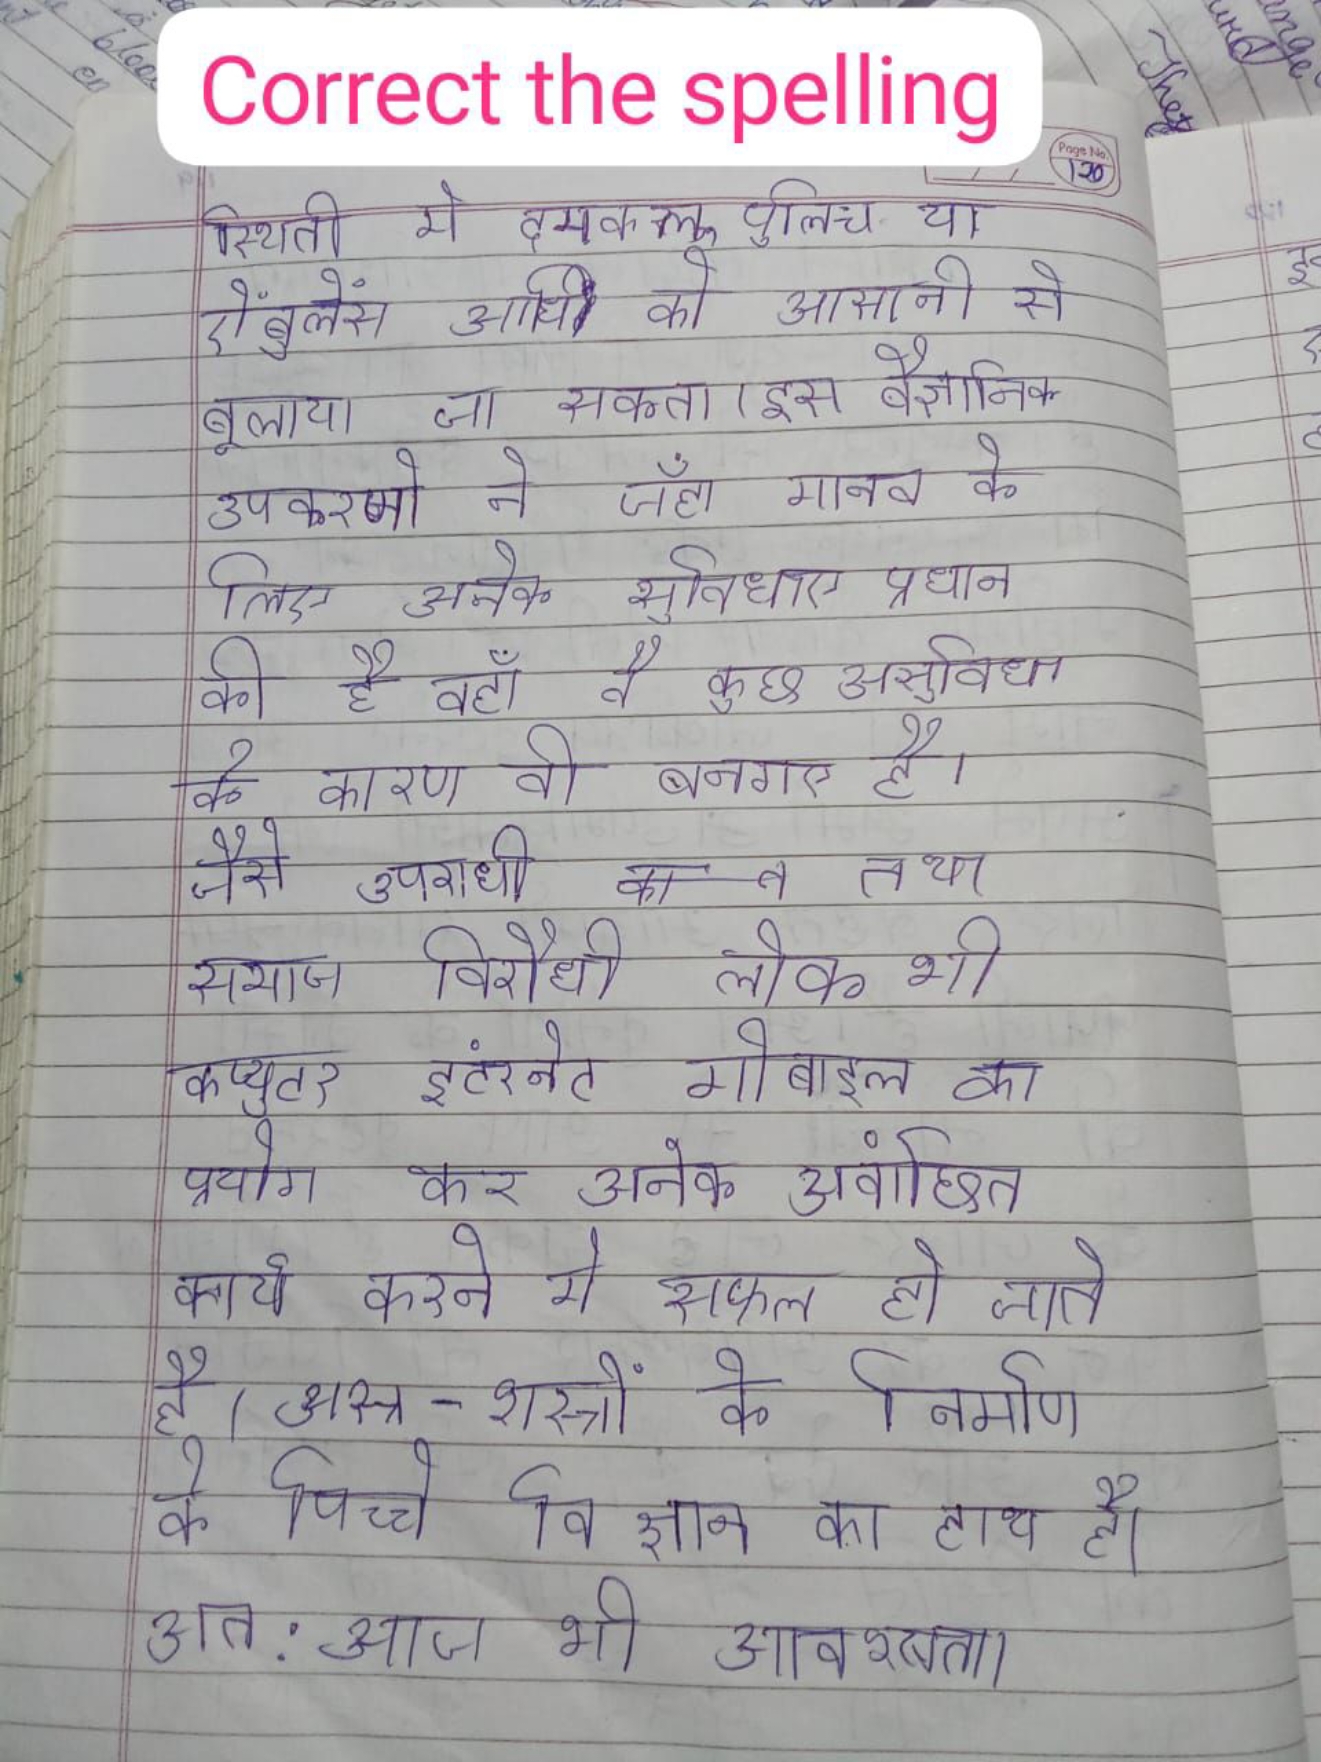 Correct the spelling
Page No.
120
स्थिती मे दमकल पुलिच या
ऐंबुलेंस आधी को आसानी से
बूलाया जा सकता। इस वैज्ञानिक
उपकरणो ने जँहा मानव के
लिए अनेक सुविधाए प्रधान
की है वहाँ वै कुछ असुविधा
के कारण वी बनगए है।
जैसे उपराधी तथा
समाज विरौधी लोक भी
कप्युटर इंटरनेट मोबाइल का
प्रयोग कर अनेक अवांछित
कार्य करने मे सफल हो जाते
है। अस्त्र - शस्त्रों के निर्माण
के पिच्चे विज्ञान का हाथ है।
अत: आज भी आवश्यता।